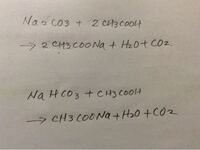 Na2CO3 + 2CH3COOH
→ 2CH3COONa + H2O + CO2
NaHCO3 + CH3COOH
→ CH3COONa + H2O + CO2